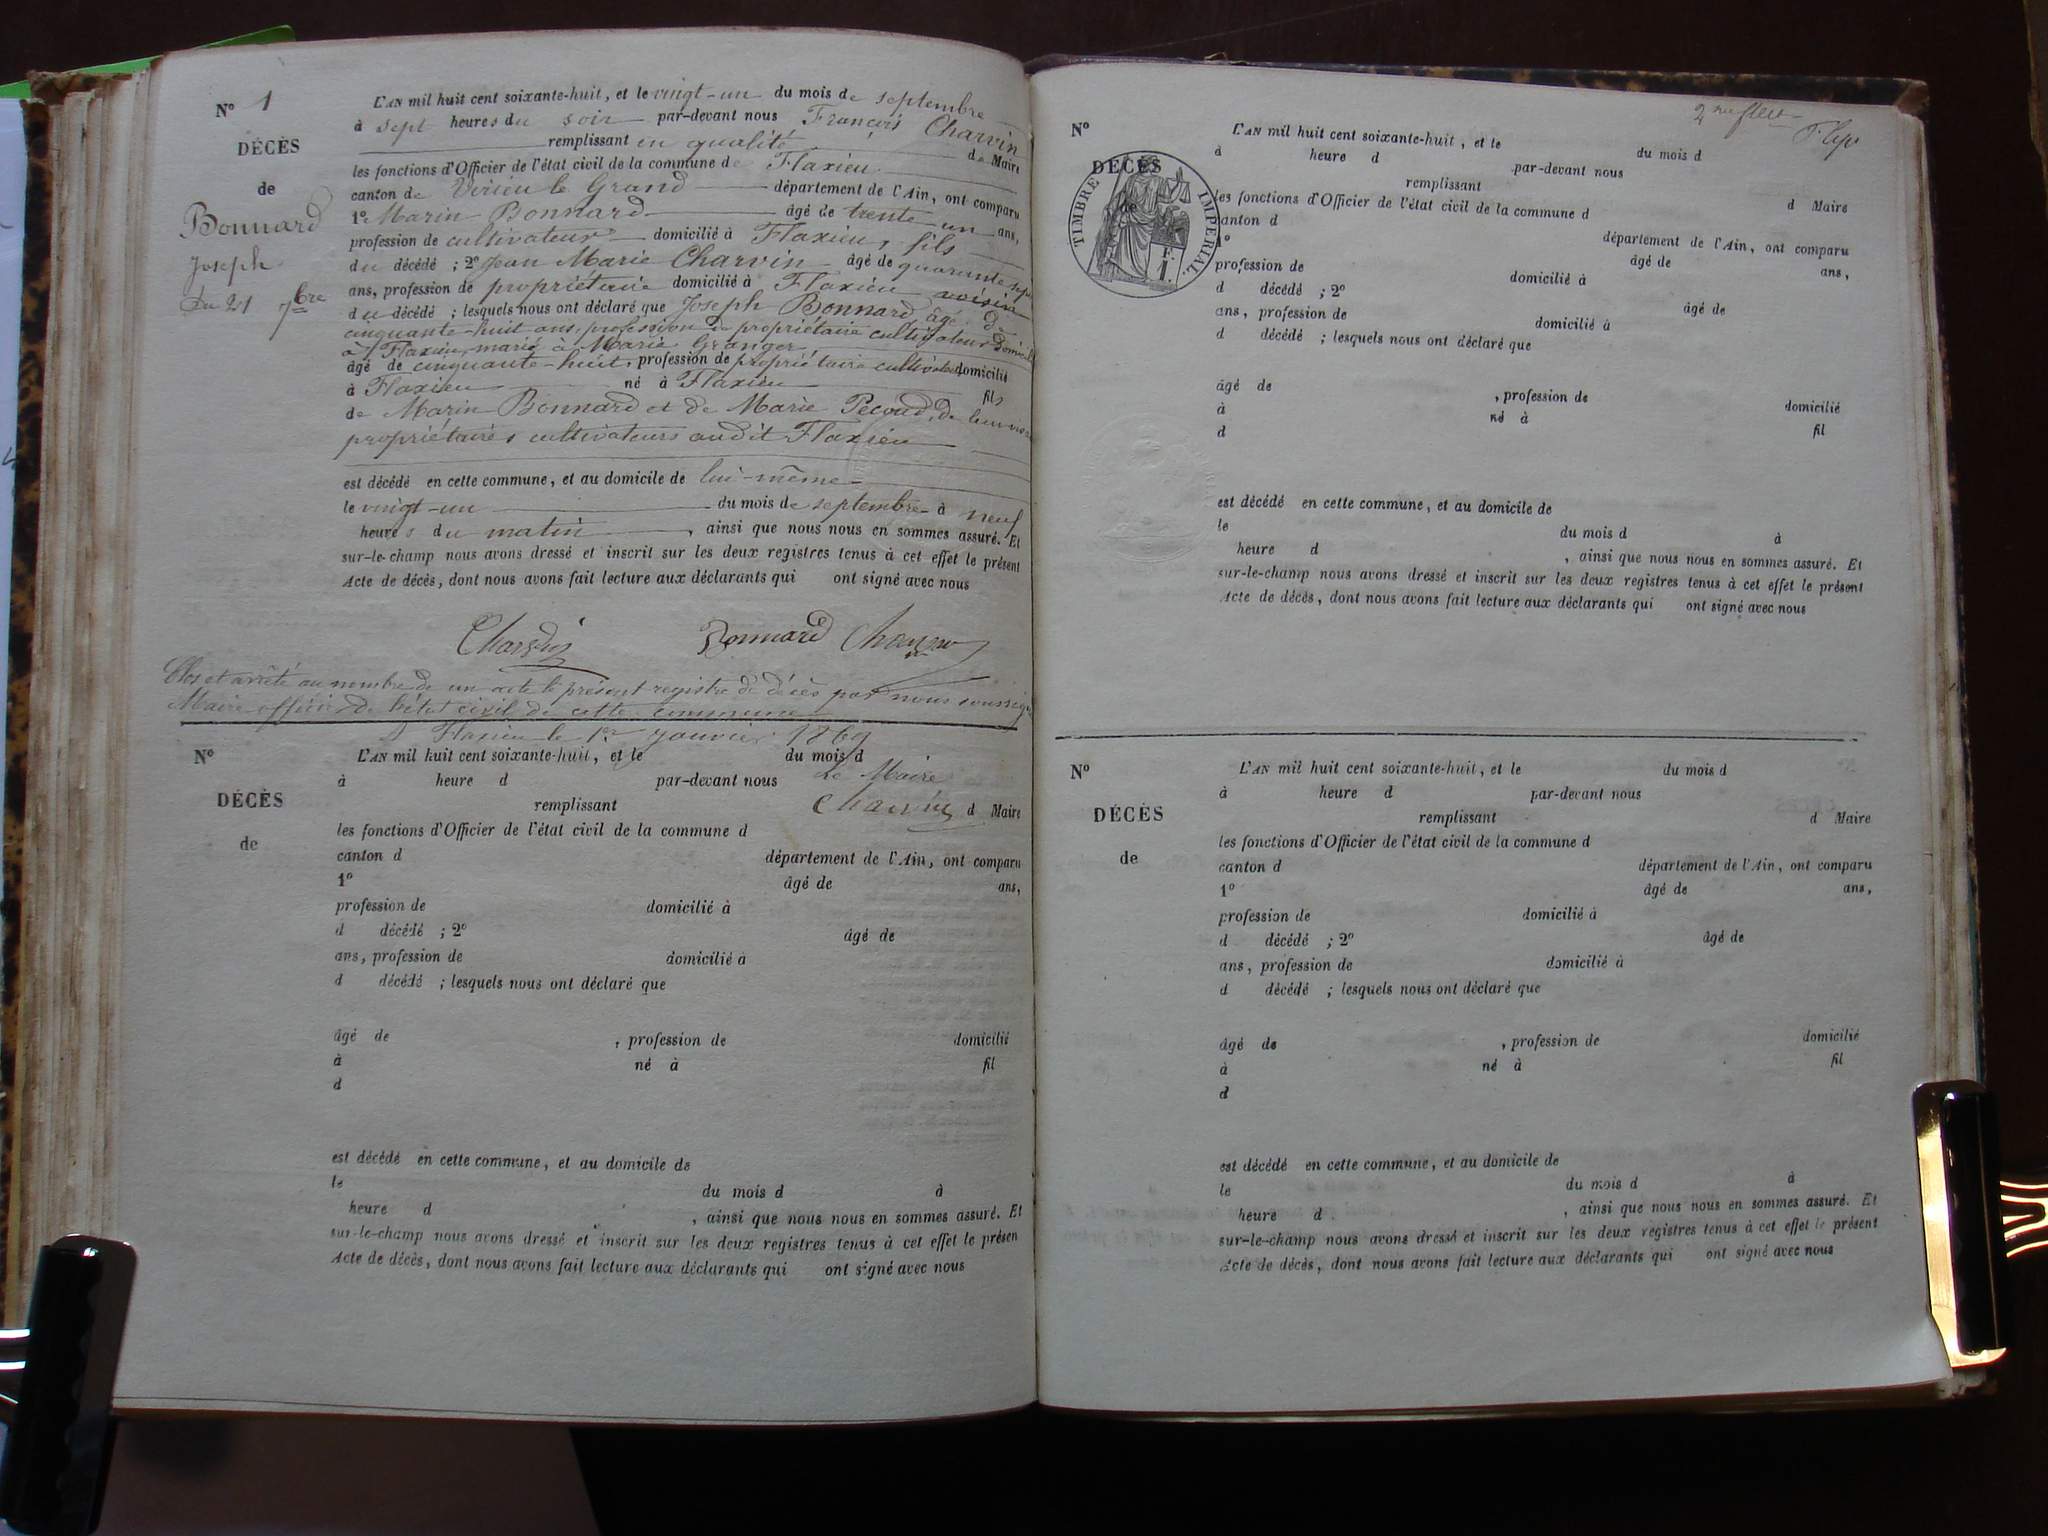 N° 1
DÉCÈS
de
Bonnard
Joseph
du 21 7bre
L'AN mil huit cent soixante-huit, et le vingt-un du mois de septembre
à sept heures du soir par-devant nous François Charvin
remplissant en qualité de Maire
les fonctions d'Officier de l'état civil de la commune de Flaxieu
canton de Virieu le Grand département de l'Ain, ont comparu
1° Marin Bonnard âgé de trente un ans,
profession de cultivateur domicilié à Flaxieu, fils
du décédé ; 2° Jean Marie Charvin âgé de quarante sept
ans, profession de propriétaire domicilié à Flaxieu voisin
du décédé ; lesquels nous ont déclaré que Joseph Bonnard âgé de
cinquante-huit ans, profession de propriétaire cultivateur domicilié
à Flaxieu, marié à Marie Granger
âgé de cinquante-huit, profession de propriétaire cultivateur domicilié
à Flaxieu né à Flaxieu fils
de Marin Bonnard et de Marie Pecoud, de leur vivant
propriétaires cultivateurs audit Flaxieu
est décédé en cette commune, et au domicile de lui-même
le vingt-un du mois de septembre à neuf
heures du matin, ainsi que nous nous en sommes assuré. Et
sur-le-champ nous avons dressé et inscrit sur les deux registres tenus à cet effet le présent
Acte de décès, dont nous avons fait lecture aux déclarants qui ont signé avec nous
Charvin Bonnard Charvin
Clos et arrêté au nombre de un acte le présent registre de décès par nous soussigné
Maire officier de l'état civil de cette commune
A Flaxieu le 1er janvier 1869
Le Maire
Charvin
N°
DÉCÈS
de
L'AN mil huit cent soixante-huit, et le du mois d
à heure d par-devant nous
remplissant d Maire
les fonctions d'Officier de l'état civil de la commune d
canton d département de l'Ain, ont comparu
1° âgé de ans,
profession de domicilié à
d décédé ; 2° âgé de
ans, profession de domicilié à
d décédé ; lesquels nous ont déclaré que
âgé de , profession de domicilié
à né à fil
d
est décédé en cette commune, et au domicile de
le du mois d à
heure d , ainsi que nous nous en sommes assuré. Et
sur-le-champ nous avons dressé et inscrit sur les deux registres tenus à cet effet le présen
Acte de décès, dont nous avons fait lecture aux déclarants qui ont signé avec nous
N°
DÉCÈS
TIMBRE IMPÉRIAL
1 F.
L'AN mil huit cent soixante-huit, et le du mois d
à heure d par-devant nous
remplissant d Maire
les fonctions d'Officier de l'état civil de la commune d
canton d département de l'Ain, ont comparu
1° âgé de ans,
profession de domicilié à
d décédé ; 2° âgé de
ans, profession de domicilié à
d décédé ; lesquels nous ont déclaré que
âgé de , profession de domicilié
à né à
d fil
est décédé en cette commune, et au domicile de
le du mois d à
heure d , ainsi que nous nous en sommes assuré. Et
sur-le-champ nous avons dressé et inscrit sur les deux registres tenus à cet effet le présent
Acte de décès, dont nous avons fait lecture aux déclarants qui ont signé avec nous
N°
DÉCÈS
de
L'AN mil huit cent soixante-huit, et le du mois d
à heure d par-devant nous
remplissant d Maire
les fonctions d'Officier de l'état civil de la commune d
canton d département de l'Ain, ont comparu
1° âgé de ans,
profession de domicilié à
d décédé ; 2° âgé de
ans, profession de domicilié à
d décédé ; lesquels nous ont déclaré que
âgé de , profession de domicilié
à né à fil
d
est décédé en cette commune, et au domicile de
le du mois d à
heure d , ainsi que nous nous en sommes assuré. Et
sur-le-champ nous avons dressé et inscrit sur les deux registres tenus à cet effet le présent
Acte de décès, dont nous avons fait lecture aux déclarants qui ont signé avec nous